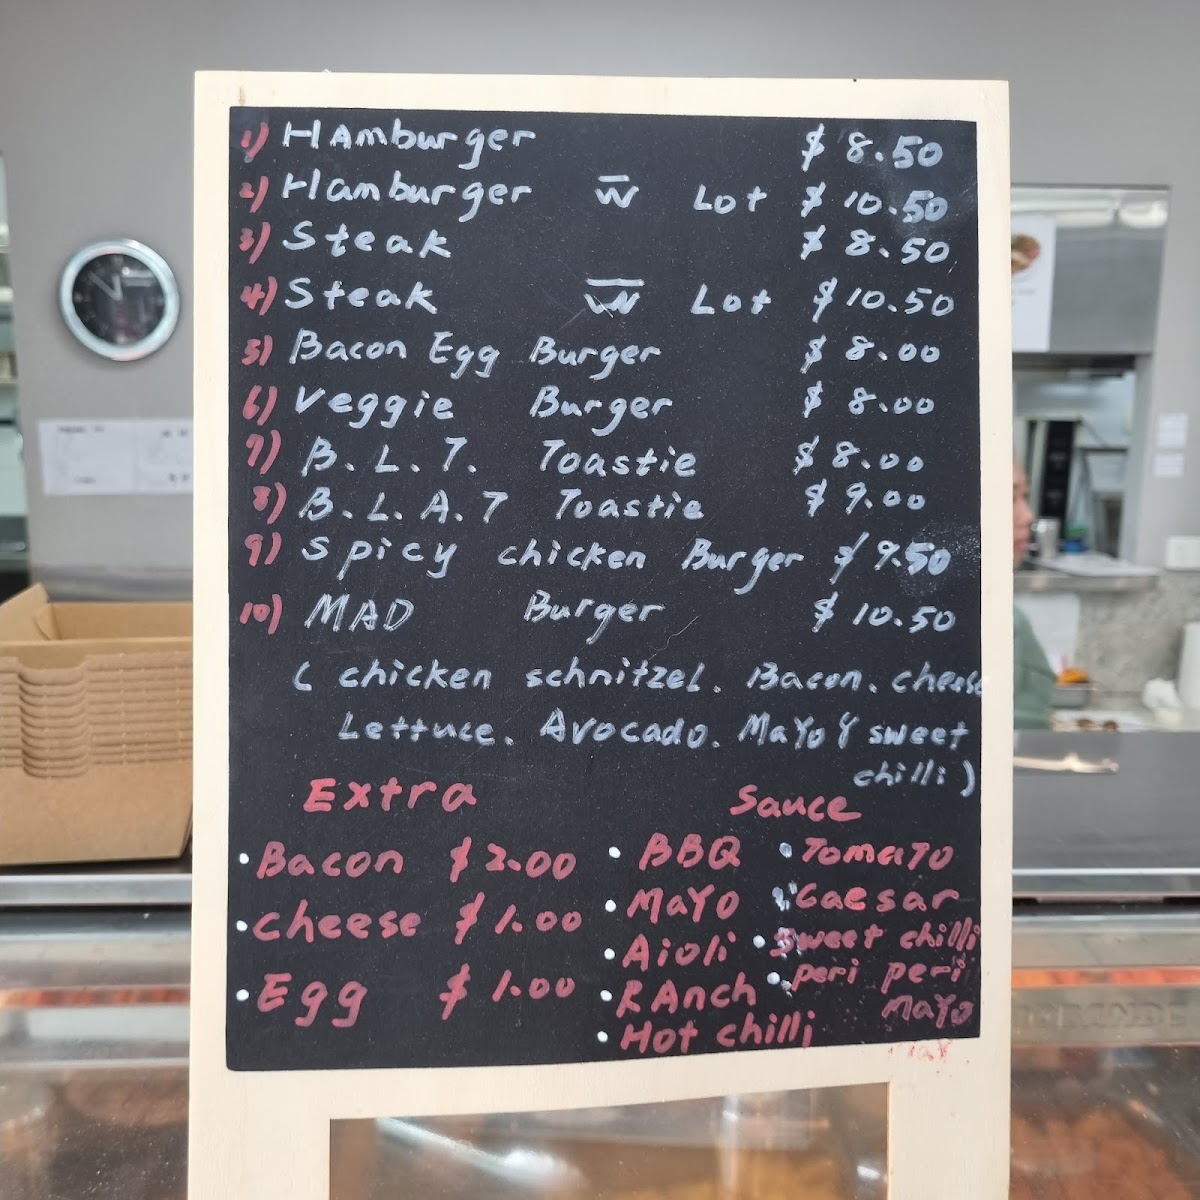 1) HAmburger $ 8.50
2) Hamburger W Lot $ 10.50
3) Steak $ 8.50
4) Steak W Lot $ 10.50
5) Bacon Egg Burger $ 8.00
6) Veggie Burger $ 8.00
7) B.L.T. Toastie $ 8.00
8) B.L.A.T Toastie $ 9.00
9) Spicy chicken Burger $ 9.50
10) MAD Burger $ 10.50
( chicken schnitzel. Bacon. cheese
Lettuce. Avocado. MaYo Y sweet
chilli )
Extra
• Bacon $ 2.00
• cheese $ 1.00
• Egg $ 1.00
Sauce
• BBQ
• MaYo
• Aioli
• RAnch
• Hot chilli
• TomaTo
• Caesar
• Sweet chilli
• peri peri
MaYo